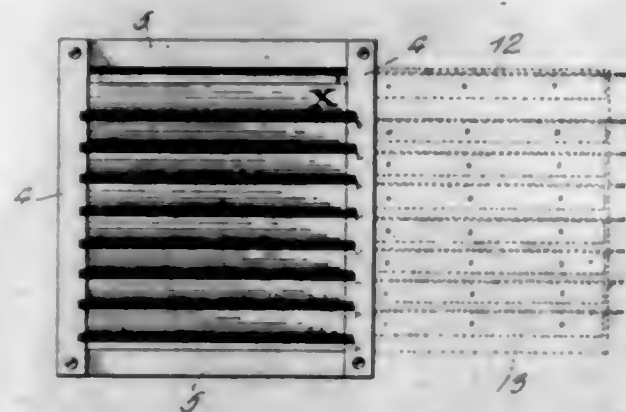 5
4
12
X
4
5
13